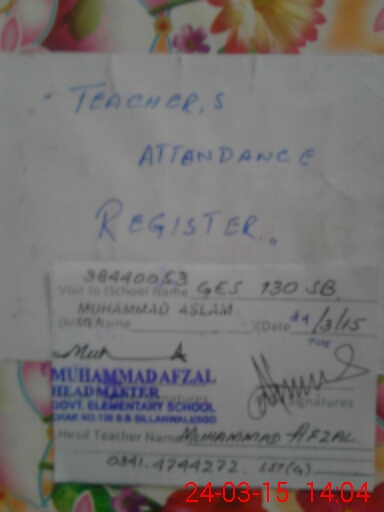 TEACHER,S
ATTENDANCE
REGISTER.
38440053
Visit to (School Name GES 130 SB.
MUHAMMAD ASLAM
Name Date 24/3/15
TUE
MUHAMMAD AFZAL
HEADMASTER
GOVT. ELEMENTARY SCHOOL
CHAK NO.130 S.B SILLANWALI SGD
Signatures
Head Teacher Name MUHAMMAD AFZAL
0341.4744272. SST(G)
24-03-15 14:04